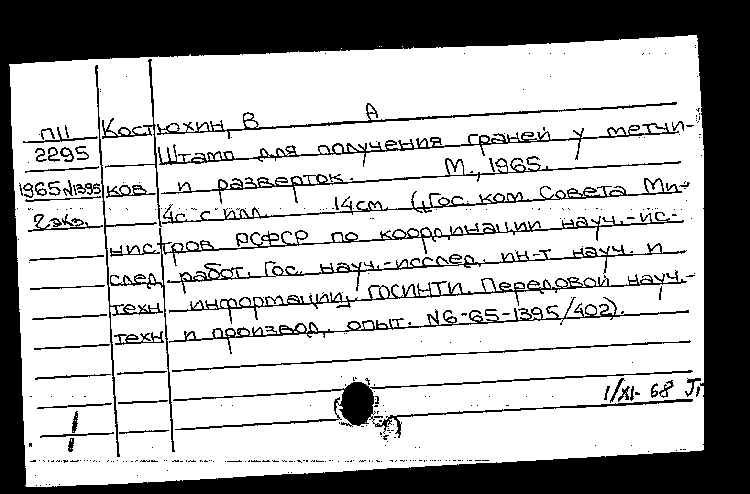 П11 Костюхин, В А
2295 Штамп для получения граней у метчи-
1965 №1395 ков и разверток. М., 1965.
2 экз. 4с. с илл. 14см. (Гос. ком. Совета Ми-
нистров РСФСР по координации науч.-ис-
след. работ. Гос. науч.-исслед. ин-т науч. и
техн. информации, ГОСИНТИ. Передовой науч.-
техн и производ. опыт. №6-65-1395/402).
1/XI-68
1